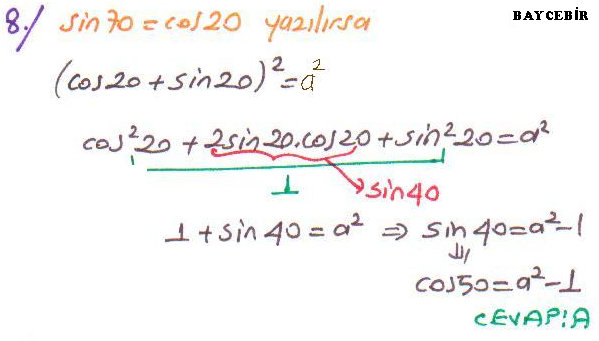 BAYCEBİR
8./ sin70=cos20 yazılırsa
(cos20+sin20)²=a²
cos²20+2sin20.cos20+sin²20=a²
1
sin40
1+sin40=a² ⇒ sin40=a²-1
⇓
cos50=a²-1
CEVAP:A